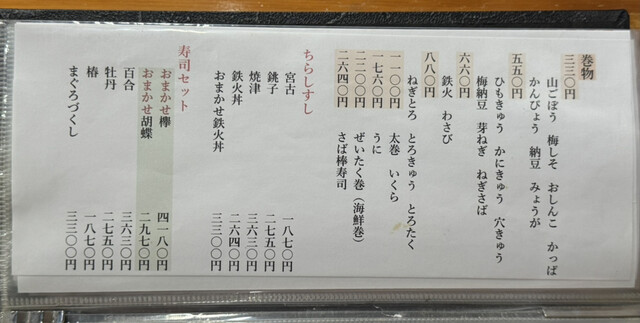 巻物
三三〇円
山ごぼう 梅しそ おしんこ かっぱ
かんぴょう 納豆 みょうが
五五〇円
ひもきゅう かにきゅう 穴きゅう
梅納豆 芽ねぎ ねぎさば
六六〇円
鉄火 わさび
八八〇円
ねぎとろ とろきゅう とろたく
一一〇〇円 太巻 いくら
一七六〇円 うに
二二〇〇円 ぜいたく巻(海鮮巻)
二六四〇円 さば棒寿司
ちらしすし
宮古 一八七〇円
銚子 二七五〇円
焼津 三六三〇円
鉄火丼 二六四〇円
おまかせ鉄火丼 三三〇〇円
寿司セット
おまかせ欅 四一八〇円
おまかせ胡蝶 二九七〇円
百合 三六三〇円
牡丹 二七五〇円
椿 一八七〇円
まぐろづくし 三三〇〇円